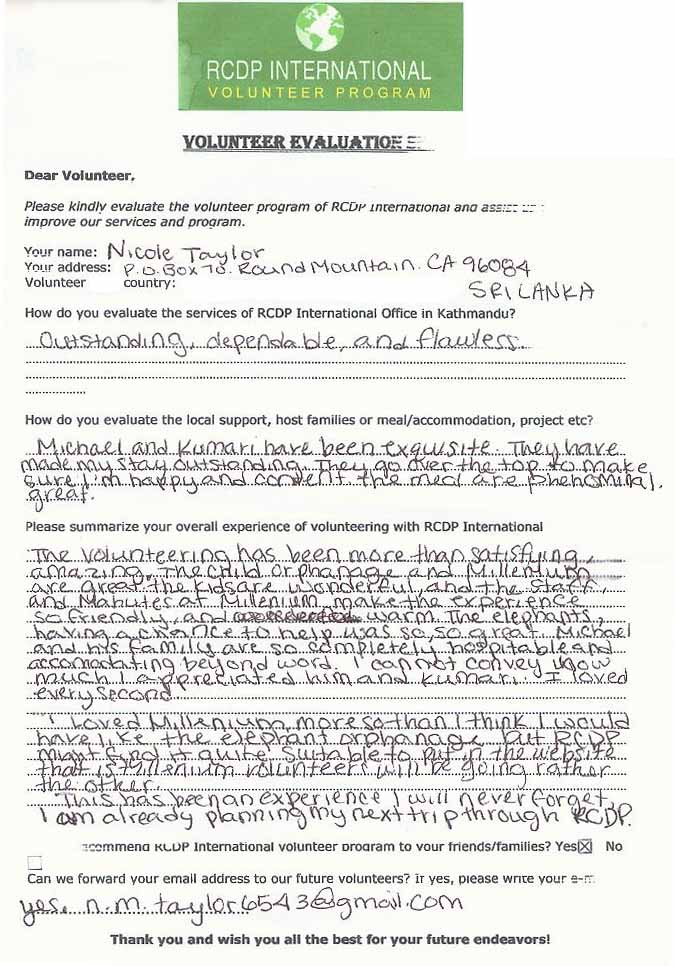 RCDP INTERNATIONAL
VOLUNTEER PROGRAM
VOLUNTEER EVALUATION
Dear Volunteer,
Please kindly evaluate the volunteer program of RCDP International and assist us
improve our services and program.
Your name: Nicole Taylor
Your address: P.O. Box 70. Round Mountain. CA 96084
Volunteer country: SRI LANKA
How do you evaluate the services of RCDP International Office in Kathmandu?
Outstanding, dependable, and flawless.
How do you evaluate the local support, host families or meal/accommodation, project etc?
Michael and Kumari have been exquisite. They have
made my stay outstanding. They go over the top to make
sure I'm happy and content the meal are phenominal.
great.
Please summarize your overall experience of volunteering with RCDP International
The volunteering has been more than satisfying,
amazing. The child orphanage and Millenium
are great the kids are wonderful, and the staff,
and Mahutes at Millenium make the experience
so friendly, and warm. The elephants,
having a chance to help was so, so great. Michael
and his family are so completely hospitable and
accomodating beyond word. I cannot convey how
much I appreciated him and Kumari. I loved
every second
I Loved Millenium, more so than I think I would
have like the elephant orphanage but RCDP
might find it quite suitable to put in the website
that is Millenium volunteers will be going rather
the other.
This has been an experience I will never forget,
I am already planning my next trip through RCDP.
ecommend RCDP International volunteer program to your friends/families? Yes☒ No
☐
Can we forward your email address to our future volunteers? If yes, please write your e-m
yes. n.m.taylor6543@gmail.com
Thank you and wish you all the best for your future endeavors!